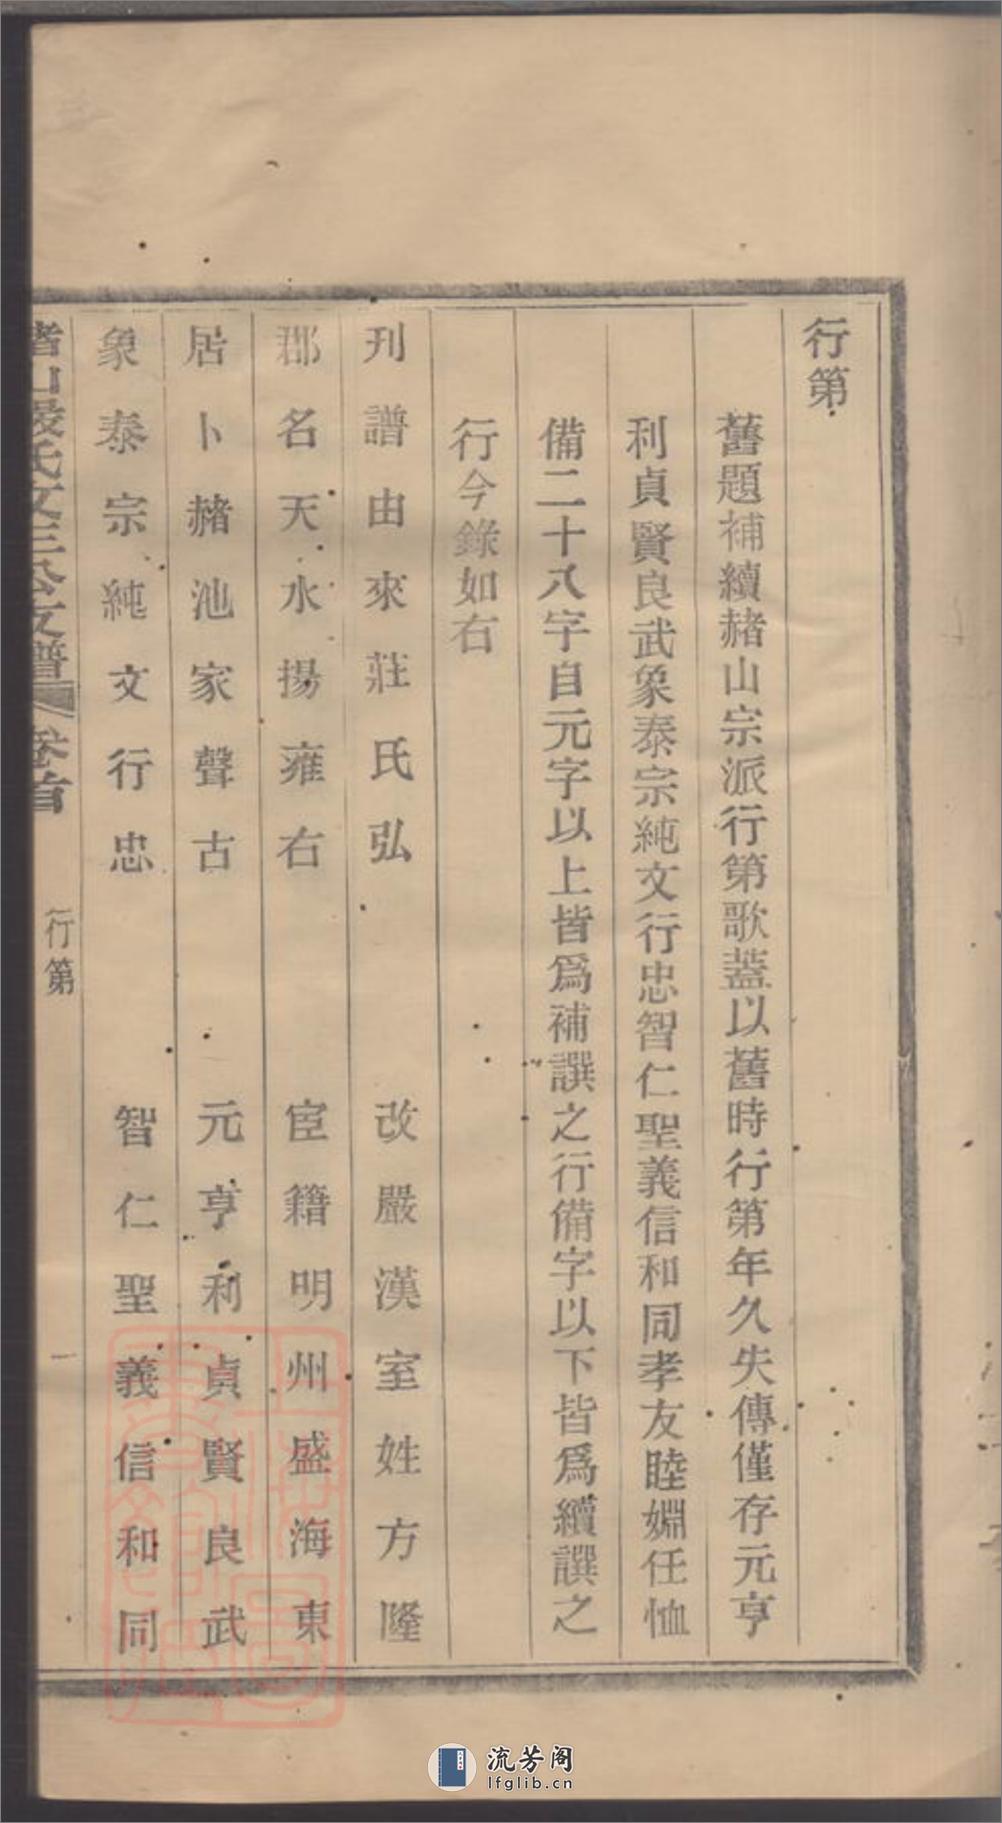 行第
舊題補續赭山宗派行第歌蓋以舊時行第年久失傳僅存元亨
利貞賢良武象泰宗純文行忠智仁聖義信和同孝友睦婣任恤
備二十八字自元字以上皆爲補譔之行備字以下皆爲續譔之
行今錄如右
刋譜由來莊氏弘　改嚴漢室姓方隆
郡名天水揚雍右　宦籍明州盛海東
居卜赭池家聲古　元亨利貞賢良武
象泰宗純文行忠　智仁聖義信和同
赭山嚴氏文三公支譜　卷首　行第　一
流芳阁
lfglib.cn